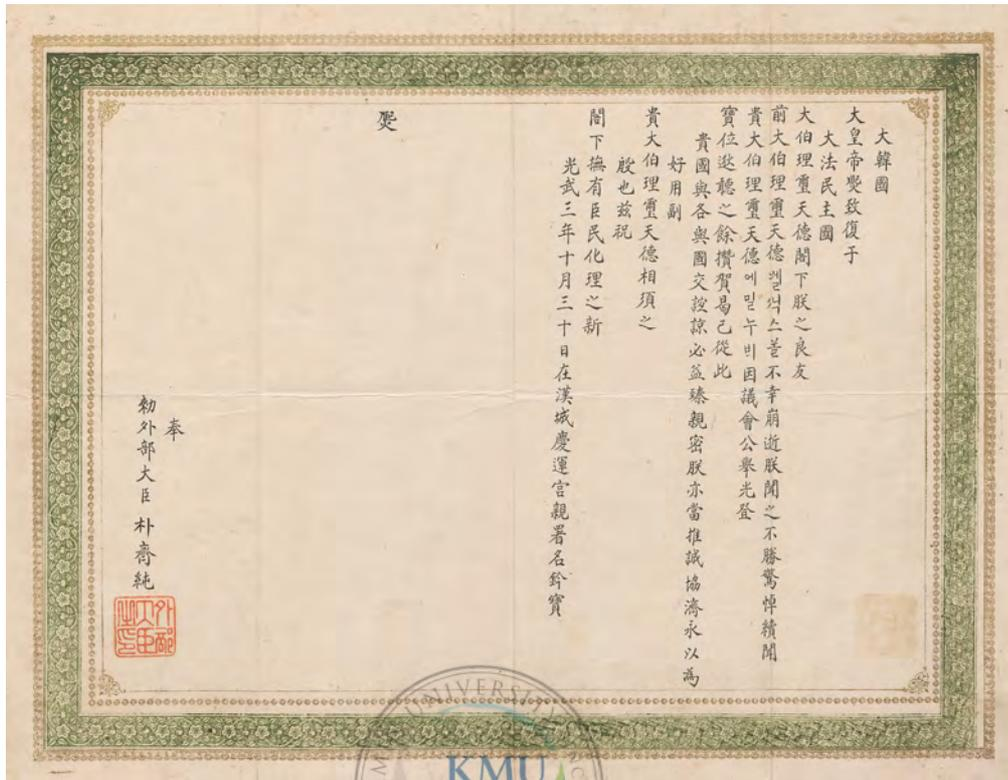 大韓國
大皇帝㷩致復于
大法民主國
大伯理璽天德閣下朕之良友
前大伯理璽天德펠릭스옾不幸崩逝朕聞之不勝驚悼續聞
貴大伯理璽天德에밀누비因議會公擧光登
寶位逖聽之餘攢賀曷已從此
貴國與各與國交誼諒必益臻親密朕亦當推誠協濟永以爲
好用副
貴大伯理璽天德相須之
殷也玆祝
閣下撫有臣民化理之新
光武三年十月三十日在漢城慶運宮親署名鈐寶
㷩
奉
勅外部大臣朴齊純
外部大臣之印
UNIVERSITY
KMU